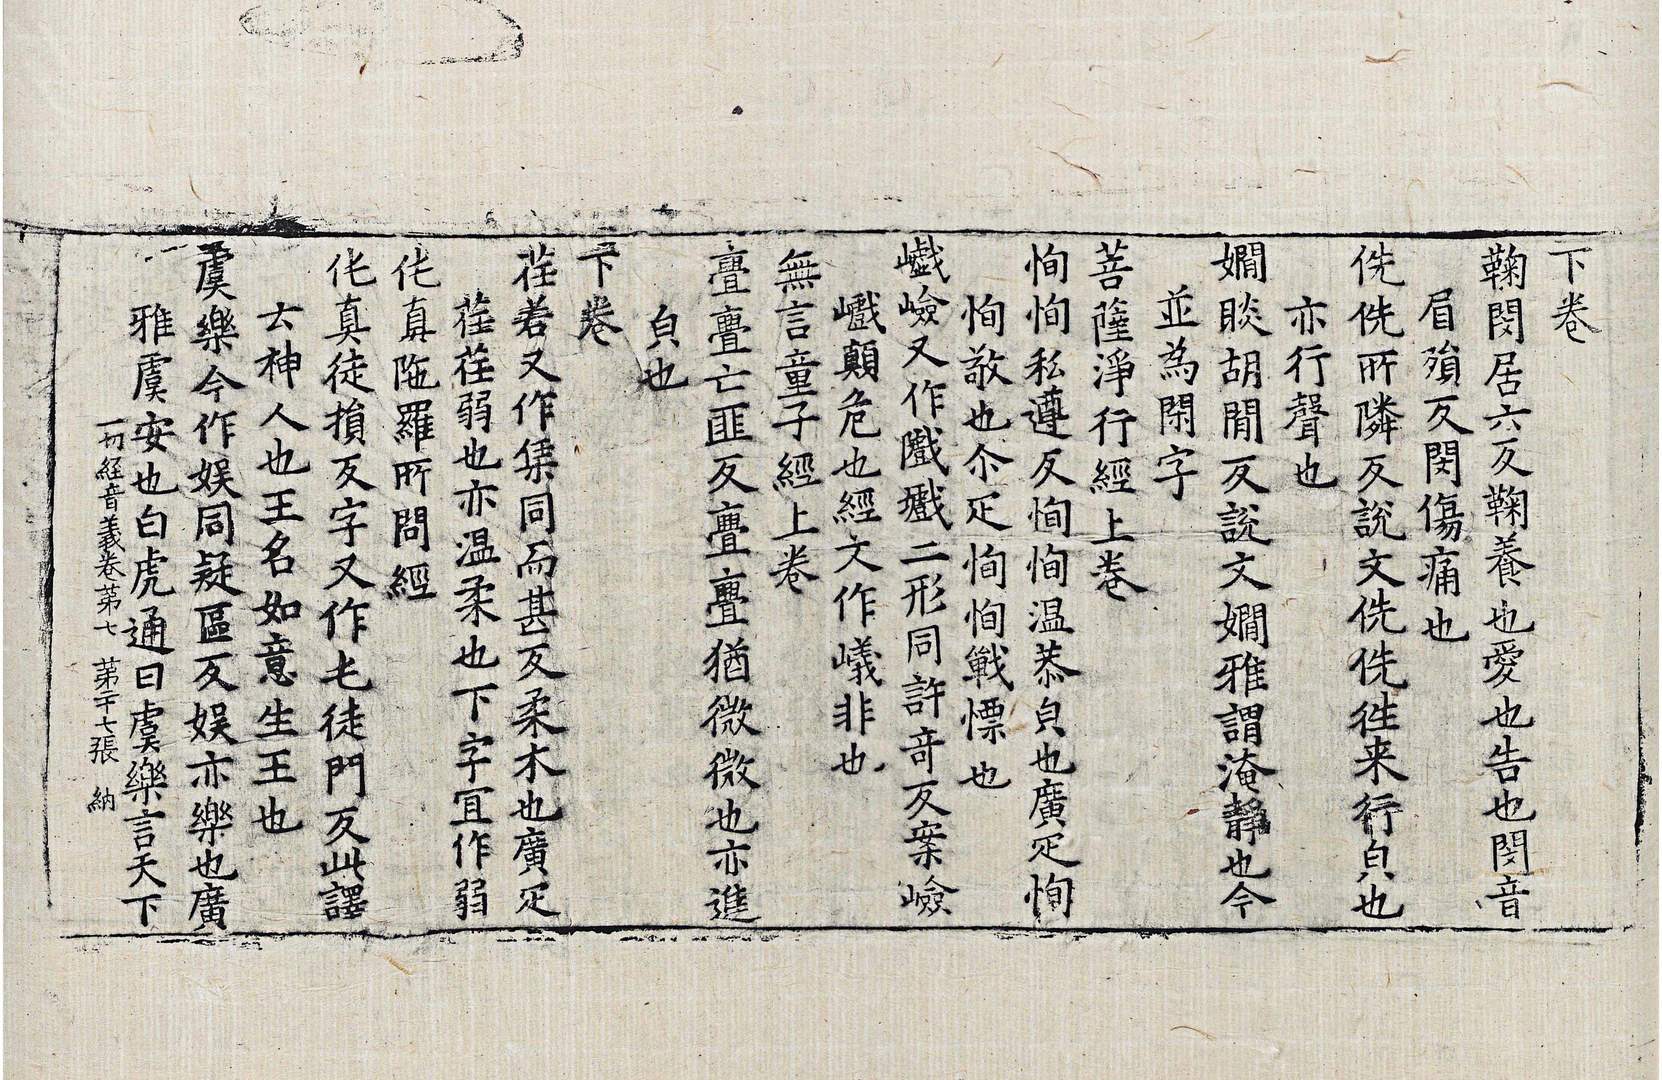 下卷
鞠閔居六反鞠養也愛也告也閔音
眉殞反閔傷痛也
侁侁所隣反說文侁侁往来行皃也
亦行聲也
嫺睒胡閒反說文嫺雅謂淹靜也今
並為閑字
菩薩淨行經上卷
恂恂私遵反恂恂温恭皃也廣疋恂
恂敬也尒疋恂恂戰慄也
巇嶮又作隵㘎二形同許奇反案嶮
巇顛危也經文作㠖非也
無言童子經上卷
亹亹亡匪反亹亹猶微微也亦進
皃也
下卷
荏若又作集同而甚反柔木也廣疋
荏荏弱也亦温柔也下字冝作弱
伅真陁羅所問經
伅真徒損反字又作屯徒門反此譯
云神人也王名如意生王也
虞樂今作娱同疑區反娱亦樂也廣
雅虞安也白虎通曰虞樂言天下
一切經音義卷第七 第二十七張 納